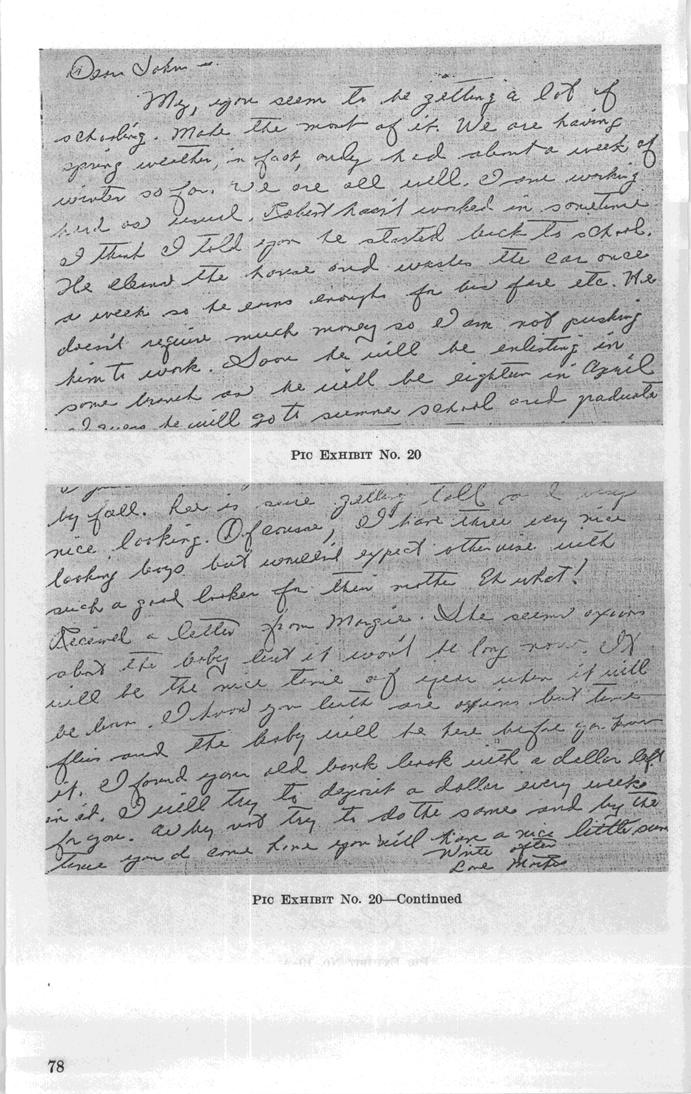 Dear John —
My, you seem to be getting a lot of
schooling. Make the most of it. We are having
spring weather, in fact, only had about a week of
winter so far. We are all well. I am working
hard as usual. Robert hasn't worked in sometime
I think I told you he started back to school.
He cleans the house and washes the car once
a week so he earns enough for bus fare etc. He
doesn't require much money so I am not pushing
him to work. Soon he will be enlisting in
some branch as he will be eighteen in April
I guess he will go to summer school and graduate
PIC EXHIBIT No. 20
by fall. Lee is sure getting tall and very
nice looking. Of course, I have three very nice
looking boys but wouldn't expect otherwise with
such a good looker for their mother Eh what!
Received a letter from Margie. She seems anxious
about the baby but it won't be long now. It
will be the nice time of year when it will
be born. I know you both are anxious but time
flies and the baby will be here before you know
it. I found your old bank book with a dollar left
in it. I will try to deposit a dollar every week
for you. why not try to do the same and by the
time you come home you will have a nice little sum
Write often
Love Mother
PIC EXHIBIT No. 20—Continued
78